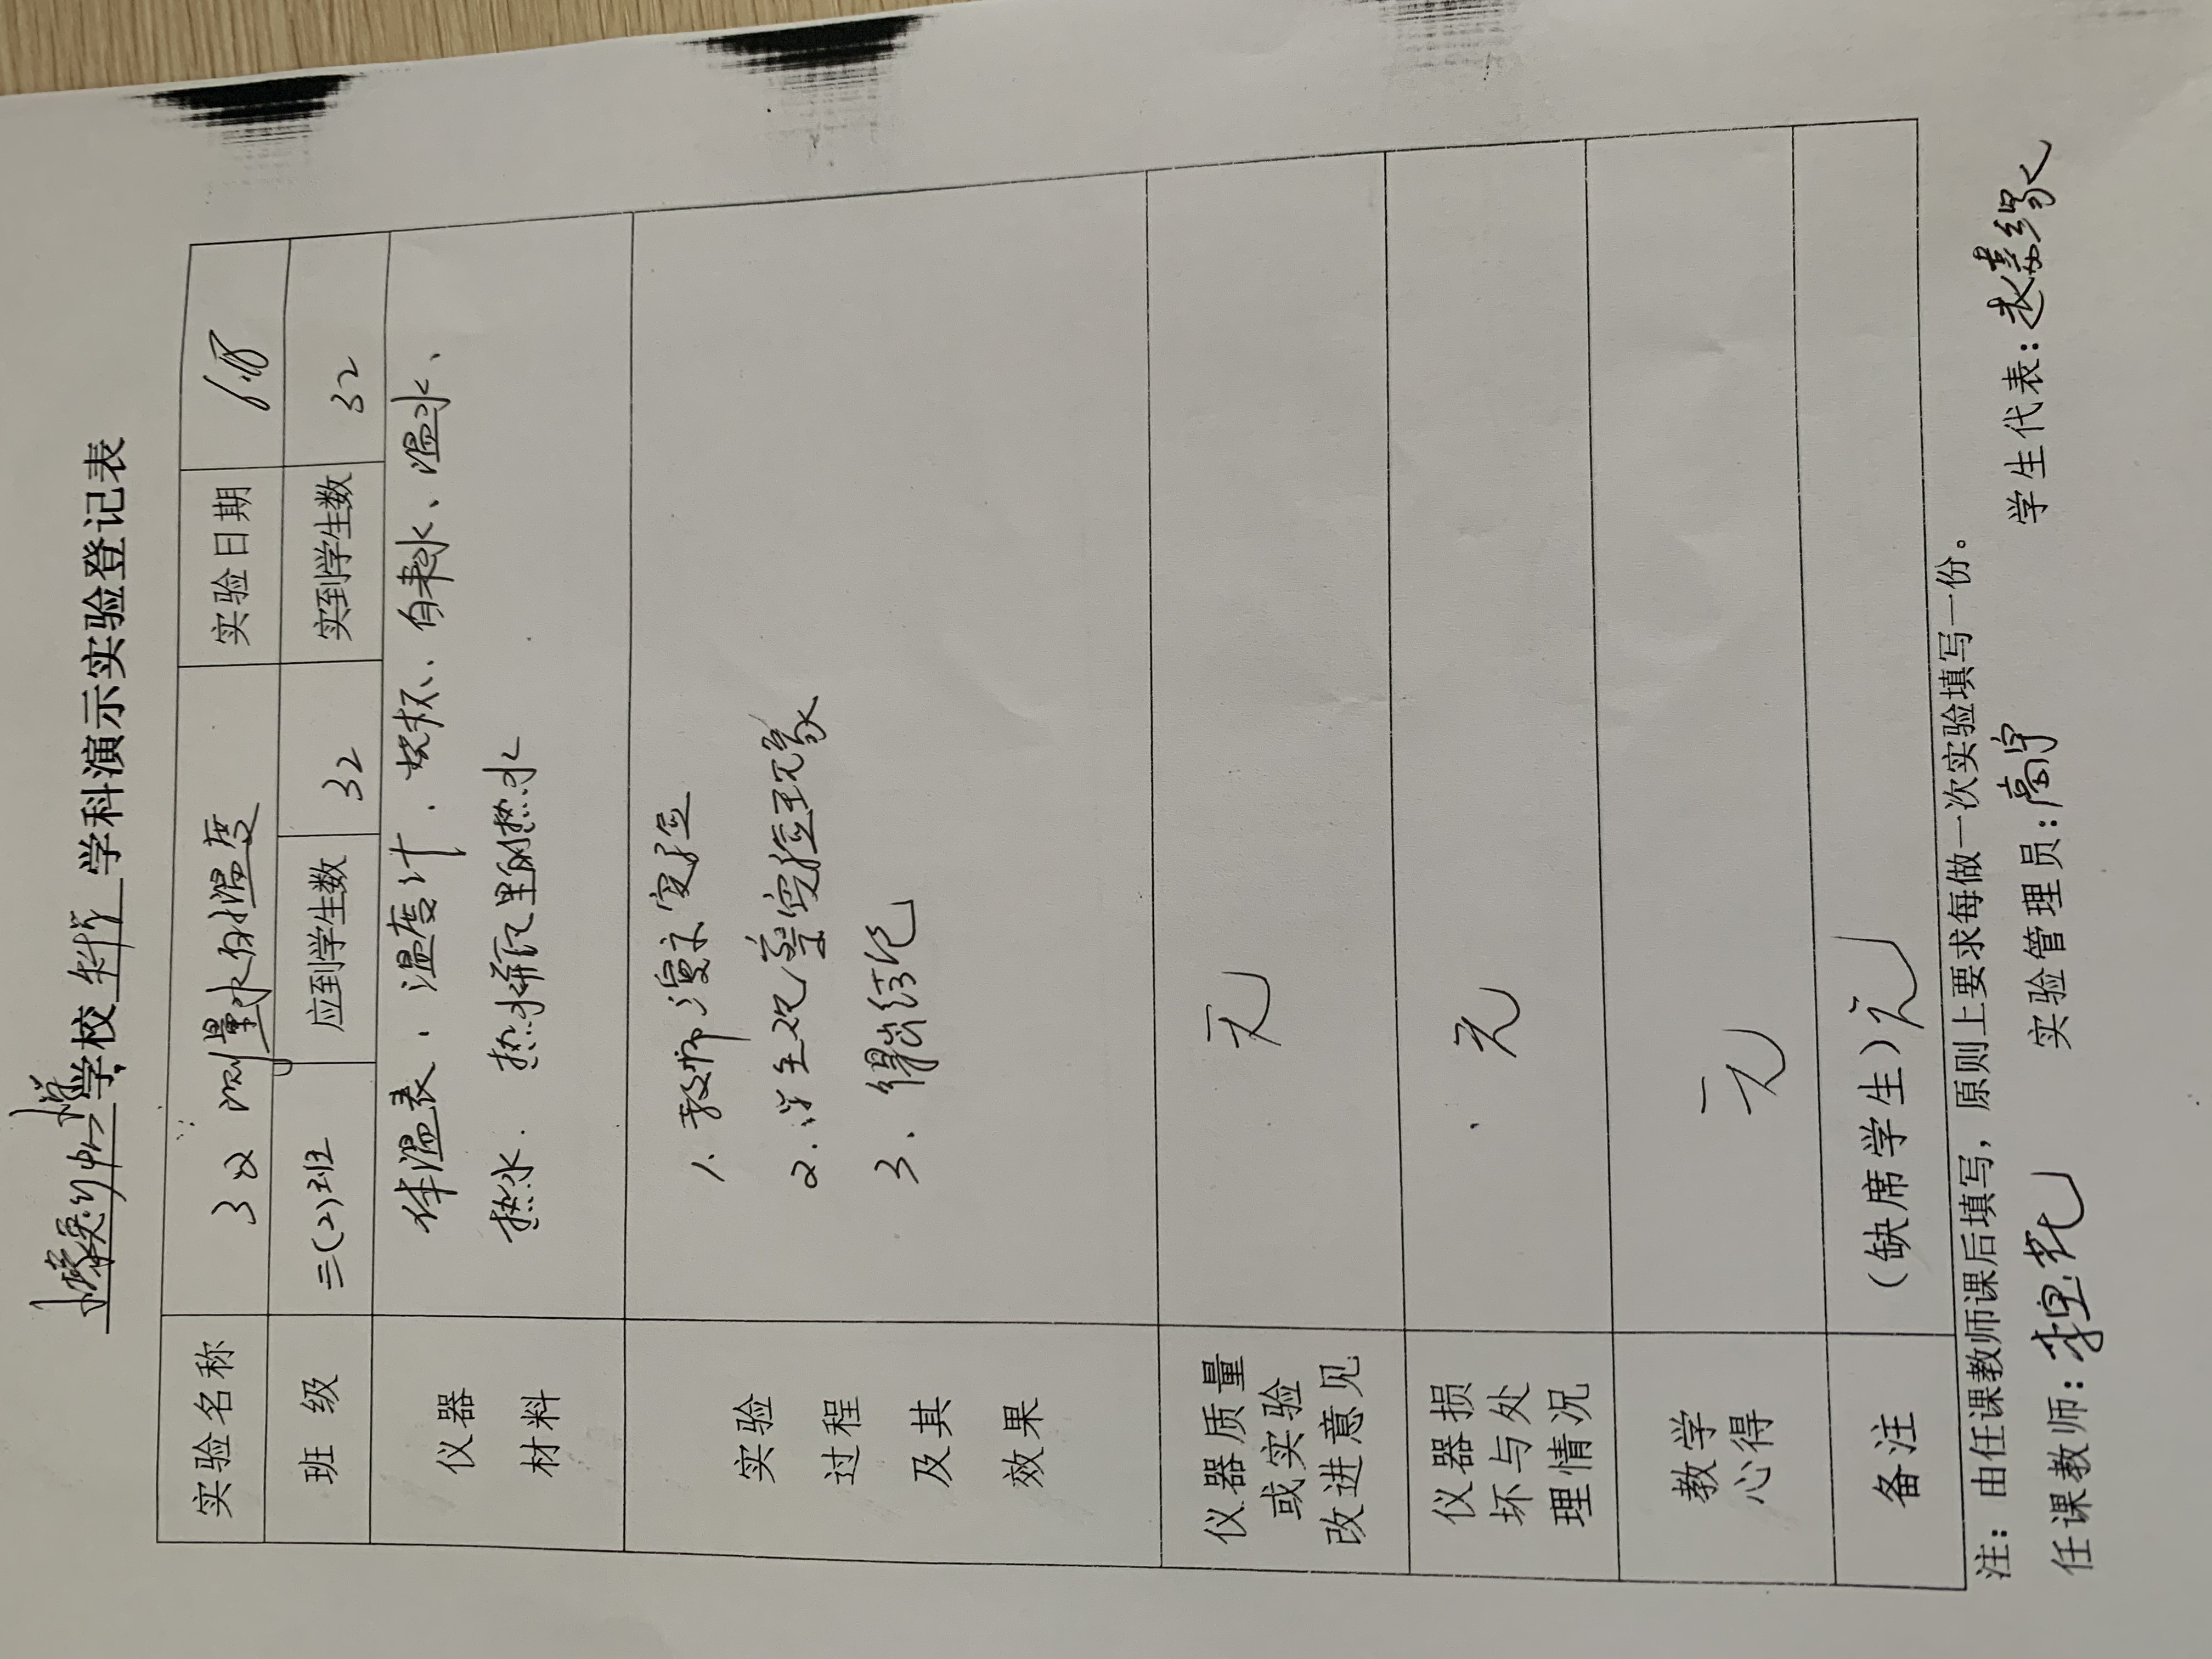 学校 科学 学科演示实验登记表
实验名称 32 测量水的温度 实验日期 6.18
班 级 三(2)班 应到学生数 32 实到学生数 32
仪器 材料
体温表、温度计、烧杯、自来水、温水、
热水、热水瓶里的热水
实验 过程 及其 效果
1. 教师演示实验
2. 学生观察实验现象
3. 得出结论
仪器质量 或实验 改进意见 无
仪器损 坏与处 理情况 无
教学 心得 无
备注 (缺席学生) 无
注：由任课教师课后填写，原则上要求每做一次实验填写一份。
任课教师: 实验管理员: 高宁 学生代表: